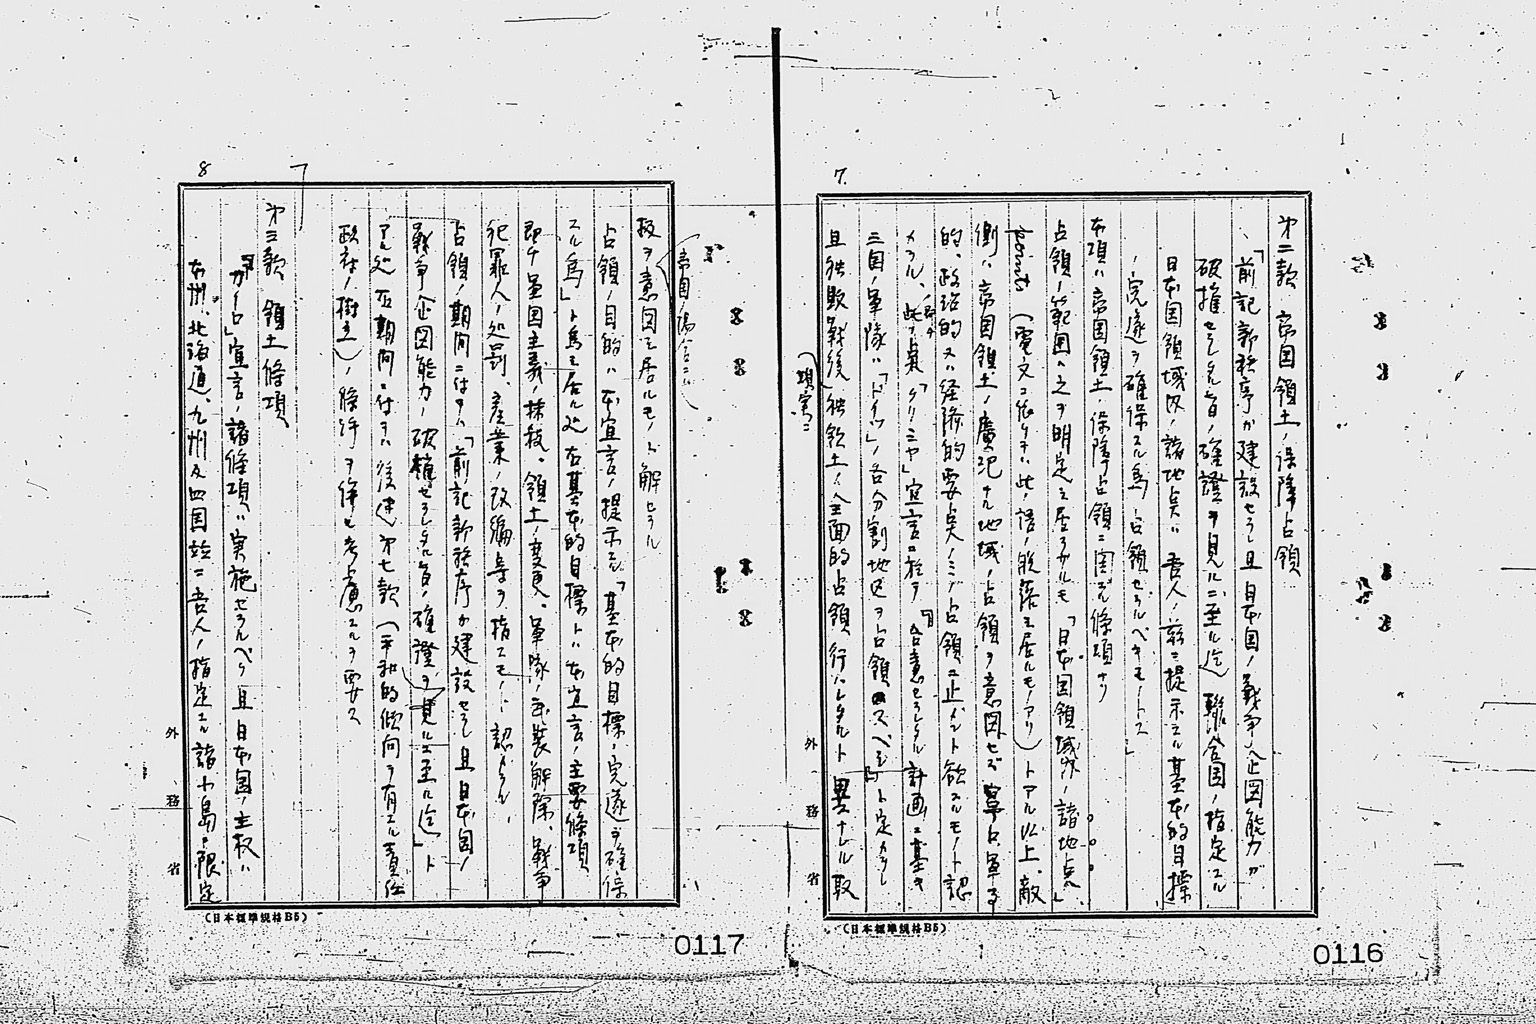 7.
第二款 帝国領土ノ保障占領
「前記新秩序カ建設セラレ且日本国ノ戦争企図能力ガ
破摧セラレタル旨ノ確證ヲ見ルニ至ル迄 聯合国ノ指定スル
日本国領域内ノ諸地点ハ吾人ノ茲ニ提示スル基本的目標
ノ完遂ヲ確保スル為占領セラルベキモノトス」
本項ハ帝国領土ノ保障占領ニ関スル條項ナリ
占領ノ範囲ハ之ヲ明定シ居ラザルモ「日本国領域内ノ諸地点」
points (電文ニ依リテハ此ノ語ノ脱落シ居ルモノアリ)トアル以上、敵
側ハ帝国領土ノ廣汎ナル地域ノ占領ヲ意図セズ 寧ロ軍事
的、政治的又ハ経済的要点ノミノ占領ニ止メント欲スルモノト認
メラル、此ノ点「クリミヤ」宣言ニ於テ「合意セラレタル計画ニ基キ
三国ノ軍隊ハ「ドイツ」ノ各分割地区ヲ占領スベシ」ト定メラレ
且独敗戦後独領土ノ全面的占領行ハレタルト異ナレル取
現実ニ
外務省
(日本標準規格B5)
0116
8
扱ヲ意図シ居ルモノト解セラル
帝国ノ場合ニ
占領ノ目的ハ本宣言ノ提示スル「基本的目標ノ完遂ヲ確保
スル為」ト為シ居ル処 右基本的目標トハ本宣言ノ主要條項
即チ軍国主義ノ抹殺、領土ノ変更、軍隊ノ武装解除、戦争
犯罪人ノ処罰、産業ノ改編等ヲ指スモノト認メラル、
占領ノ期間ニ付テハ「前記新秩序カ建設セラレ且日本国ノ
戦争企図能力ノ破摧セラレタル旨ノ確證ヲ見ルニ至ル迄」ト
アル処 右期間ニ付テハ後述第七款(平和的傾向ヲ有スル責任
政府ノ樹立)ノ條件ヲ併セ考慮スルヲ要ス
第三款 領土條項
「カイロ」宣言ノ諸條項ハ実施セラルベク且日本国ノ主権ハ
本州、北海道、九州及四国並ニ吾人ノ指定スル諸小島ニ限定
外務省
(日本標準規格B5)
0117